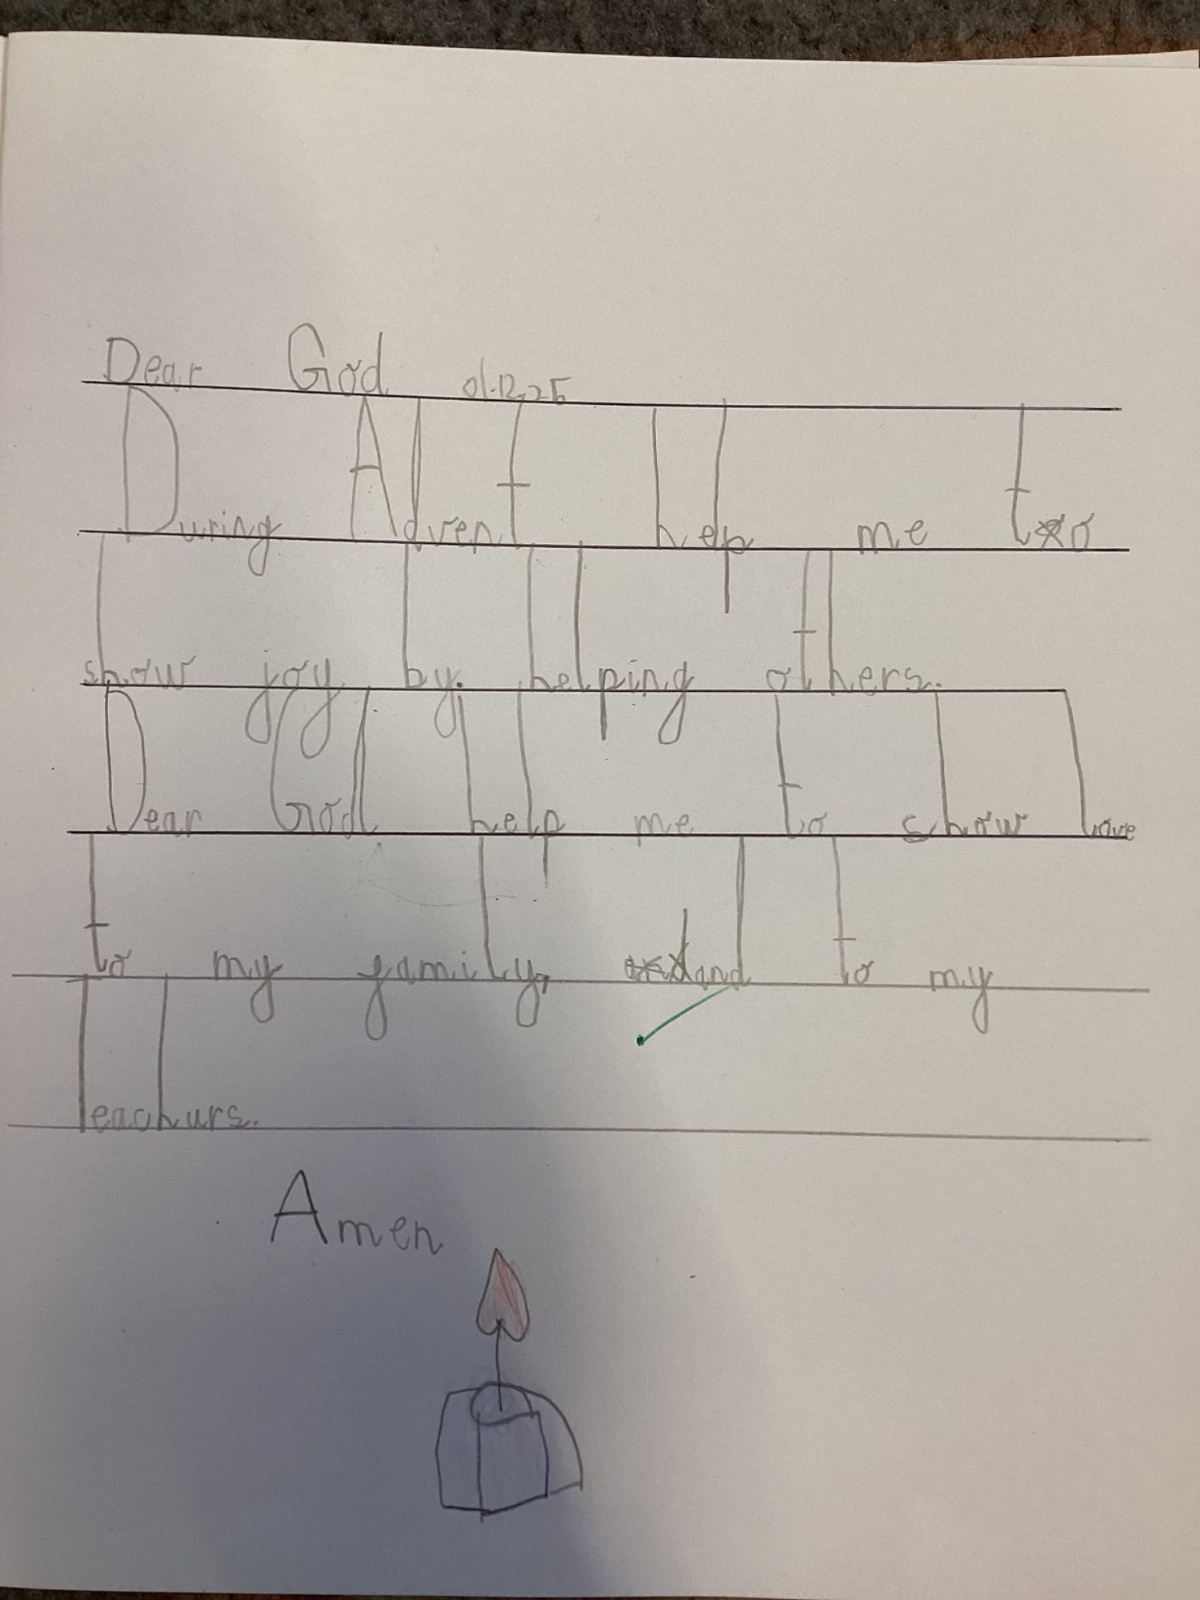 Dear God 01.12.25
During Advent help me to
show joy by. helping others.
Dear God help me to show love
to my family, and to my
teachurs.
Amen